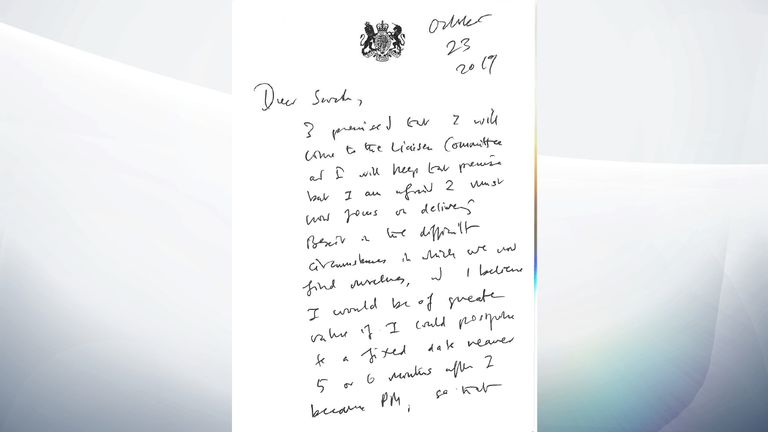 October
23
2019
Dear Sarah,
I promised that I will
come to the Liaison Committee
and I will keep that promise
but I am afraid I must
now focus on delivering
Brexit in the difficult
circumstances in which we now
find ourselves, and I believe
I would be of greater
value if I could postpone
to a fixed date nearer
5 or 6 months after I
became PM, so that